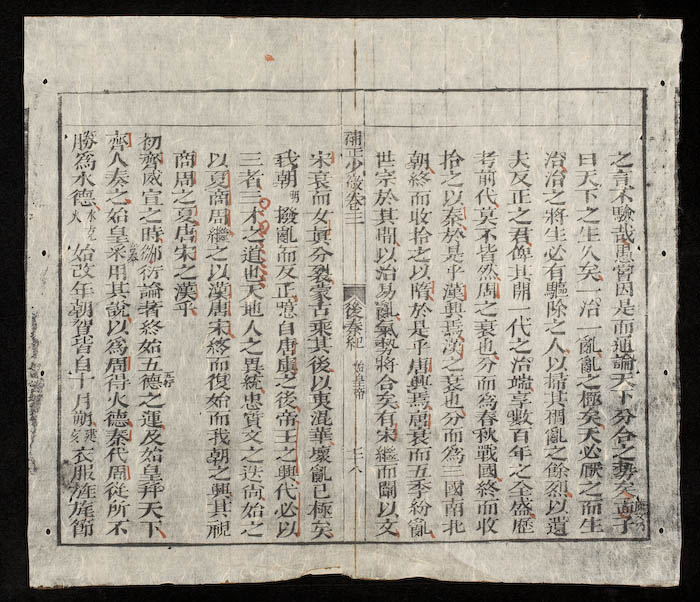 之言不驗哉愚嘗因是而通論天下分合之勢矣孟子
曰天下之生久矣一治一亂亂之極矣天必厭之而生
治治之將生必有驅除之人以掃其禍亂之餘烈以遺
夫反正之君俾其開一代之治端享數百年之全盛歷
考前代莫不皆然周之衰也分而為春秋戰國終而收
拾之以秦於是乎漢興焉漢之衰也分而為三國南北
朝終而收拾之以隋於是乎唐興焉唐衰而五季紛亂
世宗於其間以治易亂氣勢將合矣有宋繼而闡以文
卷三
後秦紀 始皇帝
宋衰而女眞分裂蒙古乘其後以東混華壞亂已極矣
我朝 明 撥亂而反正噫自唐虞之後帝王之興代必以
三者三才之道也天地人之異統忠質文之迭尙始之
以夏商周繼之以漢唐宋終而復始而我朝之興其視
商周之夏唐宋之漢乎
初齊威宣之時鄒衍論著終始五德之運及始皇幷天下
齊人奏之始皇采用其說以為周得火德秦代周從所不
勝為水德 水克火 始改年朝賀皆自十月朔 衣服旌旄節